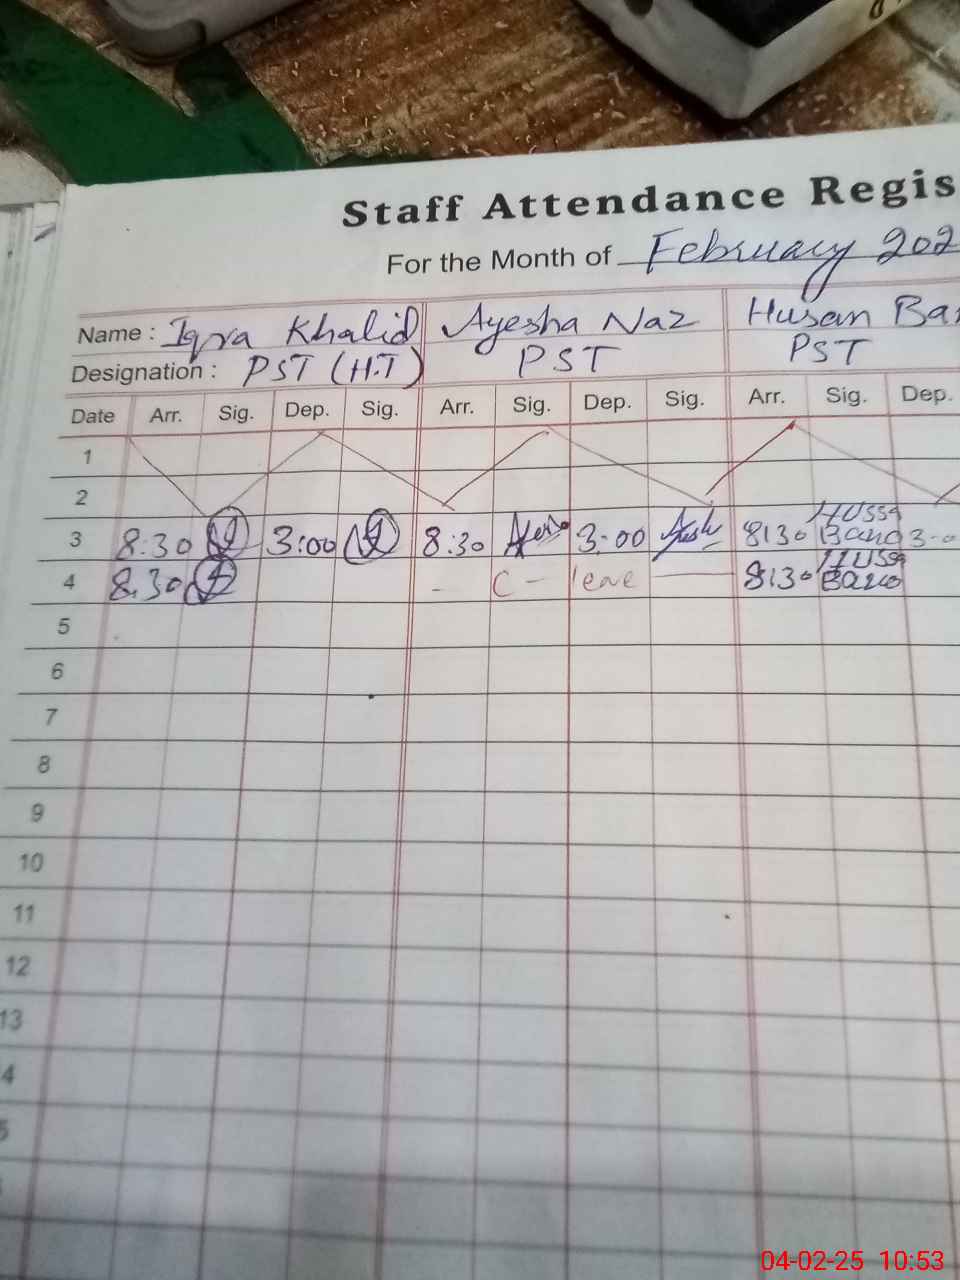 Staff Attendance Regis
For the Month of February 202
Name : Iqra Khalid Ayesha Naz Husan Ba
Designation : PST (H.T) PST PST
Date Arr. Sig. Dep. Sig. Arr. Sig. Dep. Sig. Arr. Sig. Dep.
1
2
3 8:30 3:00 8:30 3:00 8:30 Hussn Bano 3-0
4 8.30 C - leave 8:30 Hussn Bano
5
6
7
8
9
10
11
12
13
4
5
04-02-25 10:53